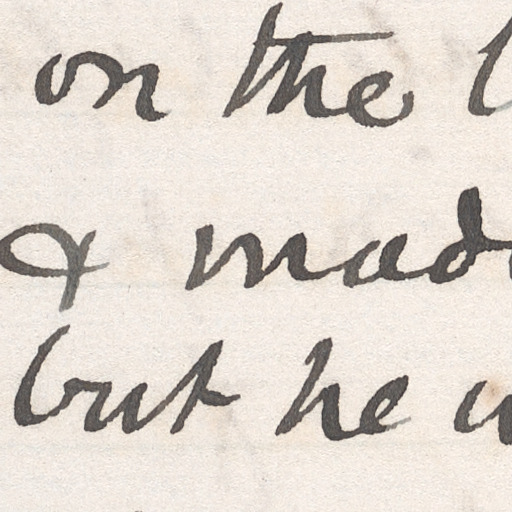 on the
& made
but he